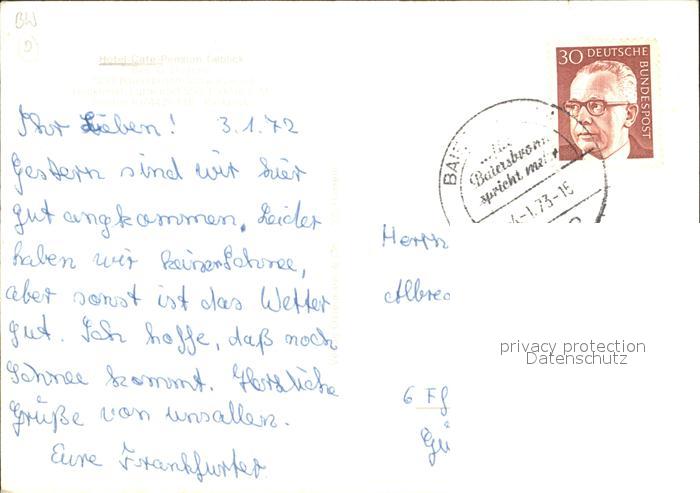 BW
Hotel-Café-Pension Talblick
30 DEUTSCHE BUNDESPOST
Ihr Lieben! 3.1.72
Gestern sind wir hier
gut angkommen. Leider
haben wir keinen Schnee,
aber sonst ist das Wetter
gut. Ich hoffe, daß noch
Schnee kommt. Herzliche
Grüße von uns allen.
Eure Frankfurter
BAIE
Baiersbronn
spricht man
4-1.73-15
Herrn
Albrec
privacy protection
Datenschutz
6 Ff
Gü